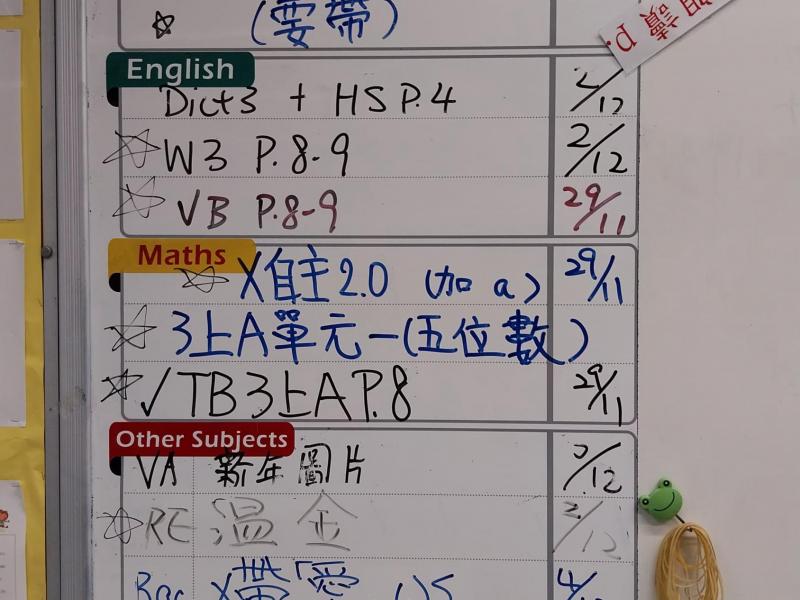 (要帶)
朗讀 P.
English
Dict3 + HS P.4 2/12
W3 P.8-9 2/12
VB P.8-9 29/11
Maths
X自主2.0 (加a) 29/11
3上A單元一(五位數)
✓TB3上A P.8 29/11
Other Subjects
VA 新年圖片 /12
RE 溫金 2/12
X帶